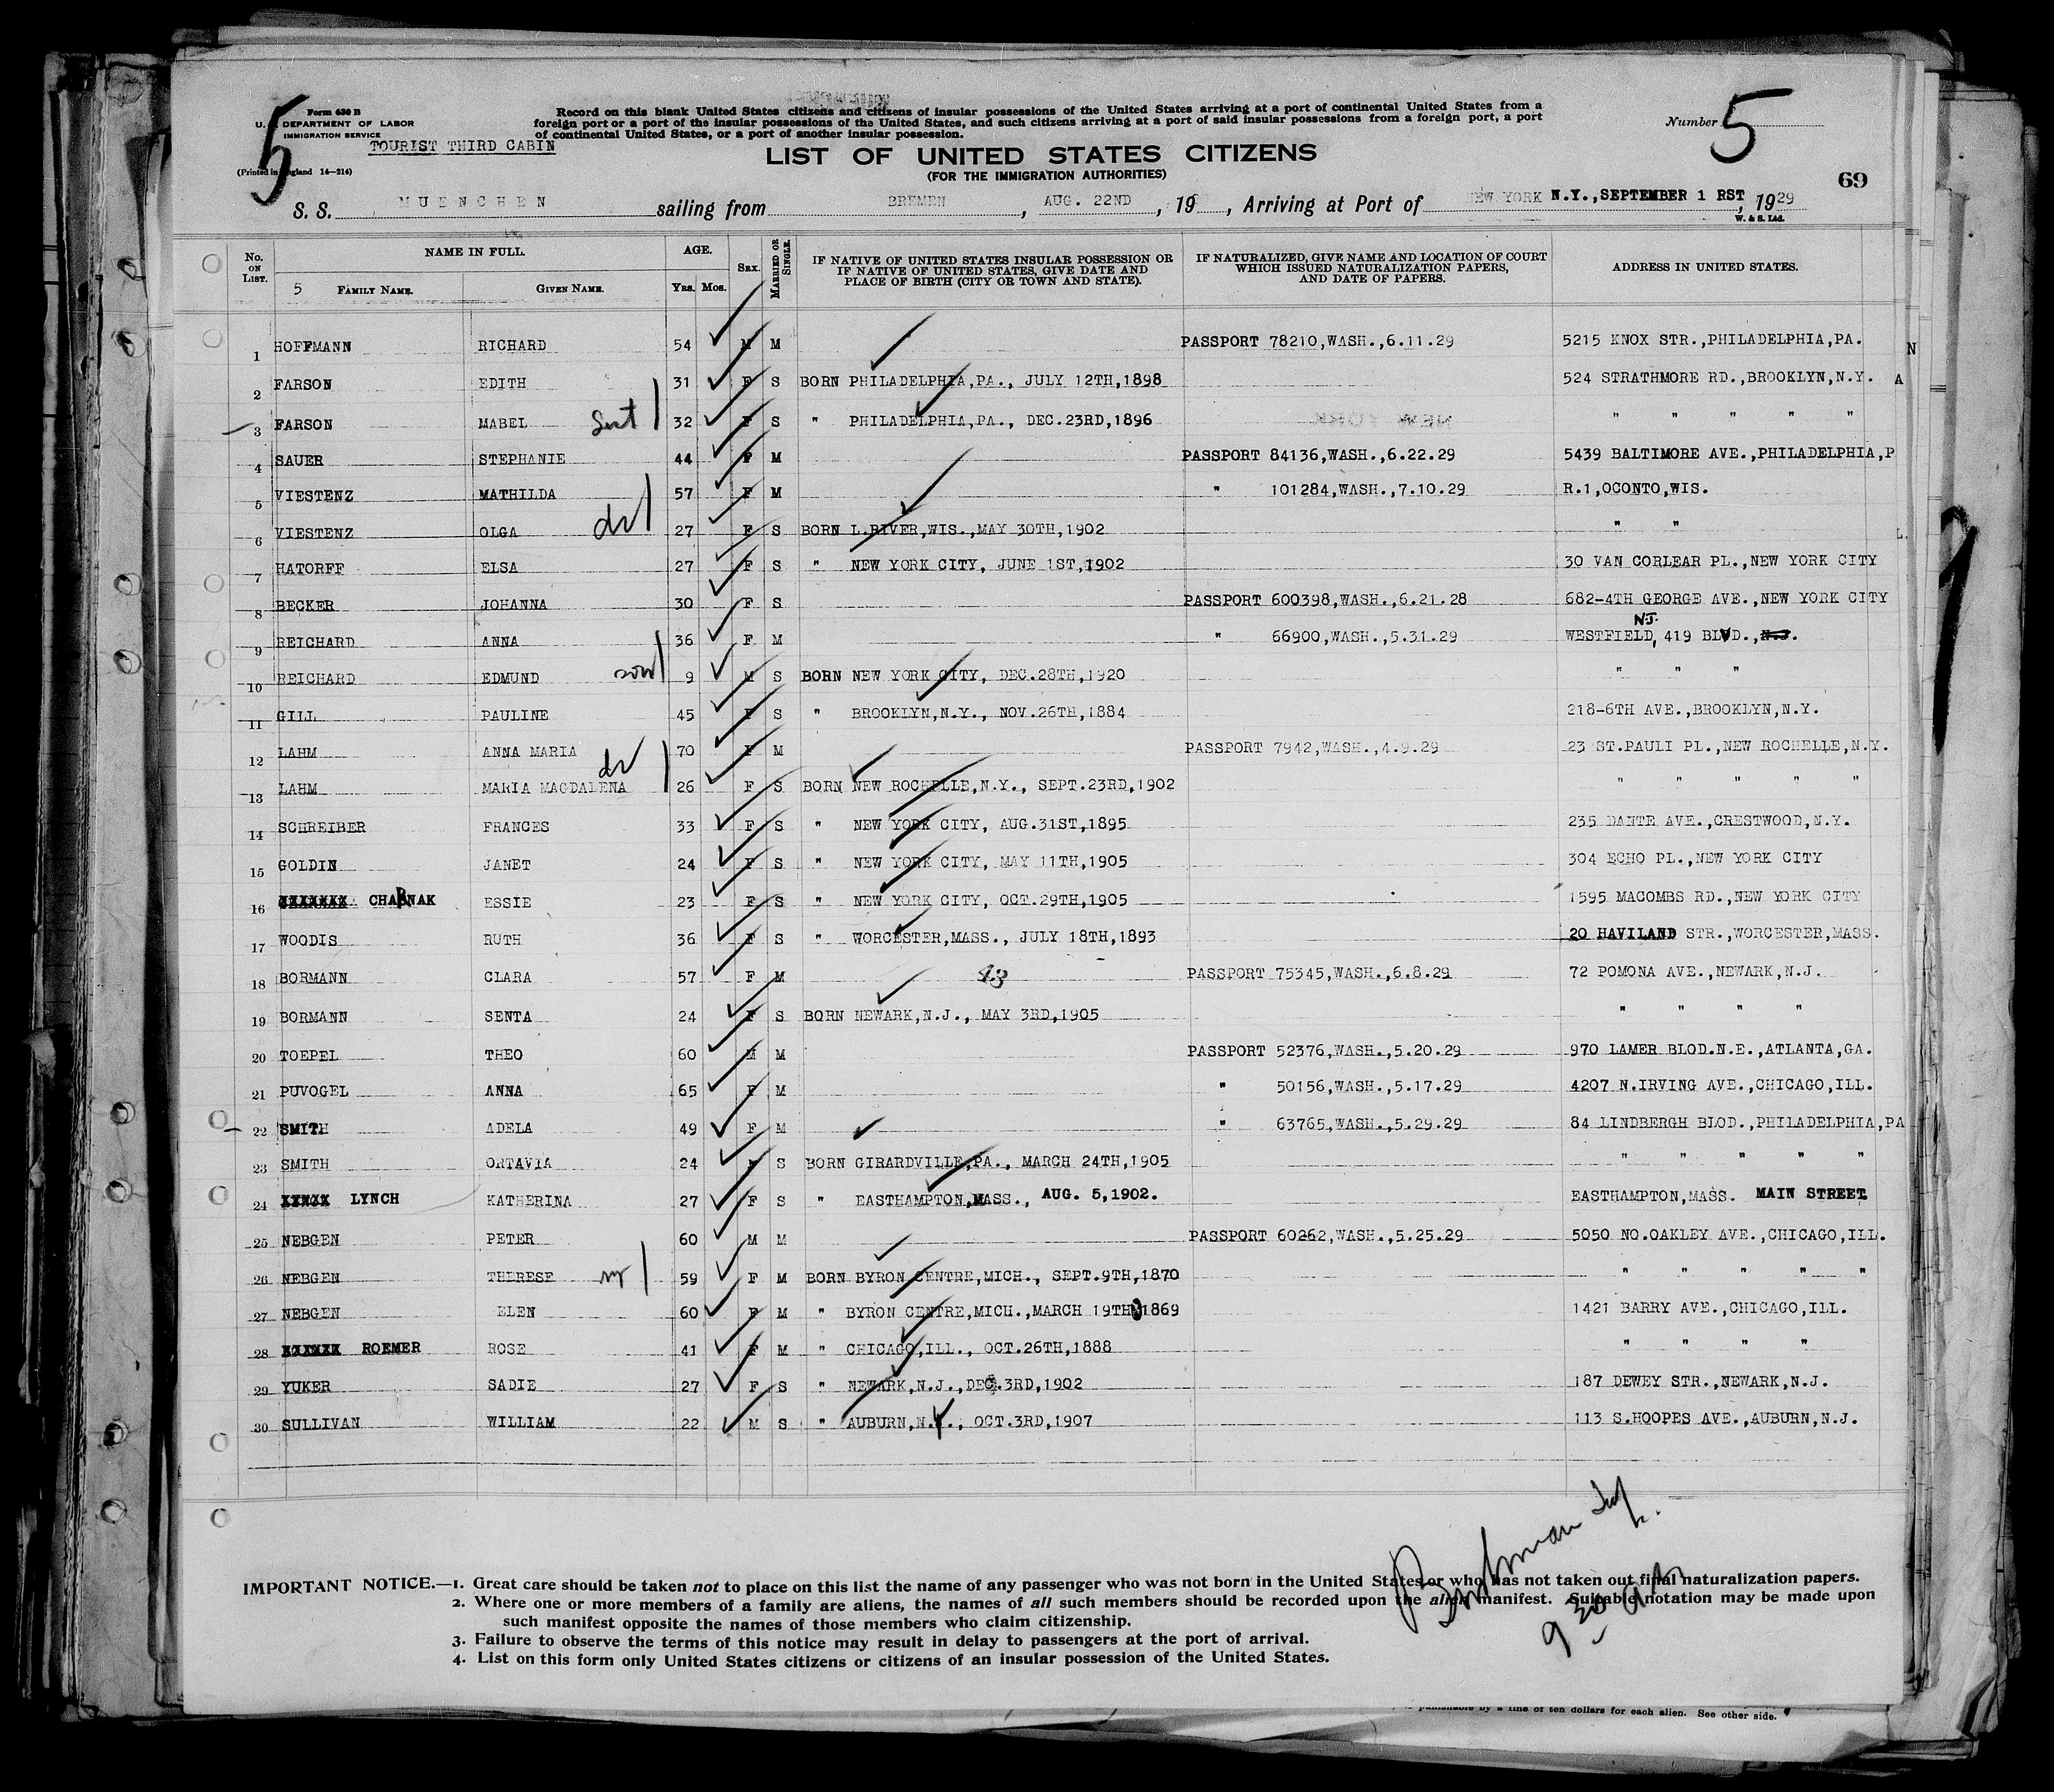 Form 630 B
U. S. DEPARTMENT OF LABOR
IMMIGRATION SERVICE
TOURIST THIRD CABIN
(Printed in England 14—214)
5
Record on this blank United States citizens and citizens of insular possessions of the United States arriving at a port of continental United States from a
foreign port or a port of the insular possessions of the United States, and such citizens arriving at a port of said insular possessions from a foreign port, a port
of continental United States, or a port of another insular possession.
Number 5
LIST OF UNITED STATES CITIZENS
(FOR THE IMMIGRATION AUTHORITIES)
69
S. S. MUENCHEN sailing from BREMEN, AUG. 22ND, 19 , Arriving at Port of NEW YORK N.Y., SEPTEMBER 1 RST, 1929
W. & S. Ltd.
No. ON LIST. NAME IN FULL. AGE. SEX. MARRIED OR SINGLE. IF NATIVE OF UNITED STATES INSULAR POSSESSION OR IF NATIVE OF UNITED STATES, GIVE DATE AND PLACE OF BIRTH (CITY OR TOWN AND STATE). IF NATURALIZED, GIVE NAME AND LOCATION OF COURT WHICH ISSUED NATURALIZATION PAPERS, AND DATE OF PAPERS. ADDRESS IN UNITED STATES.
5 FAMILY NAME. GIVEN NAME. YRS. MOS.
1 HOFFMANN RICHARD 54 M M PASSPORT 78210,WASH.,6.11.29 5215 KNOX STR.,PHILADELPHIA,PA. N
2 FARSON EDITH 31 F S BORN PHILADELPHIA,PA., JULY 12TH,1898 524 STRATHMORE RD.,BROOKLYN,N.Y. A
3 FARSON MABEL 32 F S " PHILADELPHIA,PA., DEC.23RD,1896 " " " " "
4 SAUER STEPHANIE 44 F M PASSPORT 84136,WASH.,6.22.29 5439 BALTIMORE AVE.,PHILADELPHIA,P
5 VIESTENZ MATHILDA 57 F M " 101284,WASH.,7.10.29 R.1,OCONTO,WIS.
6 VIESTENZ OLGA 27 F S BORN L.RIVER,WIS.,MAY 30TH,1902 " "
7 HATORFF ELSA 27 F S " NEW YORK CITY, JUNE 1ST,1902 30 VAN CORLEAR PL.,NEW YORK CITY
8 BECKER JOHANNA 30 F S PASSPORT 600398,WASH.,6.21.28 682-4TH GEORGE AVE.,NEW YORK CITY
9 REICHARD ANNA 36 F M " 66900,WASH.,5.31.29 WESTFIELD, N.J. 419 BLVD.,N.J.
10 REICHARD EDMUND son 9 M S BORN NEW YORK CITY, DEC.28TH,1920 " " "
11 GILL PAULINE 45 F S " BROOKLYN,N.Y., NOV.26TH,1884 218-6TH AVE.,BROOKLYN,N.Y.
12 LAHM ANNA MARIA 70 F M PASSPORT 7942,WASH.,4.9.29 23 ST.PAULI PL.,NEW ROCHELLE,N.Y.
13 LAHM MARIA MAGDALENA 26 F S BORN NEW ROCHELLE,N.Y., SEPT.23RD,1902 " " " " "
14 SCHREIBER FRANCES 33 F S " NEW YORK CITY, AUG.31ST,1895 235 DANTE AVE.,CRESTWOOD,N.Y.
15 GOLDIN JANET 24 F S " NEW YORK CITY, MAY 11TH,1905 304 ECHO PL.,NEW YORK CITY
16 XXXXXXX CHABNAK ESSIE 23 F S " NEW YORK CITY, OCT.29TH,1905 1595 MACOMBS RD.,NEW YORK CITY
17 WOODIS RUTH 36 F S " WORCESTER,MASS., JULY 18TH,1893 20 HAVILAND STR.,WORCESTER,MASS.
18 BORMANN CLARA 57 F M PASSPORT 75345,WASH.,6.8.29 72 POMONA AVE.,NEWARK,N.J.
19 BORMANN SENTA 24 F S BORN NEWARK,N.J., MAY 3RD,1905 " " " "
20 TOEPEL THEO 60 M M PASSPORT 52376,WASH.,5.20.29 970 LAMER BLOD.N.E.,ATLANTA,GA.
21 PUVOGEL ANNA 65 F M " 50156,WASH.,5.17.29 4207 N.IRVING AVE.,CHICAGO,ILL.
22 SMITH ADELA 49 F M " 63765,WASH.,5.29.29 84 LINDBERGH BLOD.,PHILADELPHIA,PA
23 SMITH ORTAVIA 24 F S BORN GIRARDVILLE,PA., MARCH 24TH,1905 " " " " "
24 XXXXX LYNCH KATHERINA 27 F S " EASTHAMPTON,MASS., AUG. 5,1902. EASTHAMPTON,MASS. MAIN STREET
25 NEBGEN PETER 60 M M PASSPORT 60262,WASH.,5.25.29 5050 NO.OAKLEY AVE.,CHICAGO,ILL.
26 NEBGEN THERESE 59 F M BORN BYRON CENTRE,MICH., SEPT.9TH,1870 " " " " "
27 NEBGEN ELEN 60 F M " BYRON CENTRE,MICH.,MARCH 19TH,1869 1421 BARRY AVE.,CHICAGO,ILL.
28 XXXXXX ROEMER ROSE 41 F M " CHICAGO,ILL., OCT.26TH,1888 " " " "
29 YUKER SADIE 27 F S " NEWARK,N.J.,DEC.3RD,1902 187 DEWEY STR.,NEWARK,N.J.
30 SULLIVAN WILLIAM 22 M S " AUBURN,N.Y., OCT.3RD,1907 113 S.HOOPES AVE.,AUBURN,N.J.
9 30 am
IMPORTANT NOTICE.—1. Great care should be taken not to place on this list the name of any passenger who was not born in the United States or who has not taken out final naturalization papers.
2. Where one or more members of a family are aliens, the names of all such members should be recorded upon the alien manifest. Suitable notation may be made upon
such manifest opposite the names of those members who claim citizenship.
3. Failure to observe the terms of this notice may result in delay to passengers at the port of arrival.
4. List on this form only United States citizens or citizens of an insular possession of the United States.
punishable by a fine of ten dollars for each alien. See other side.